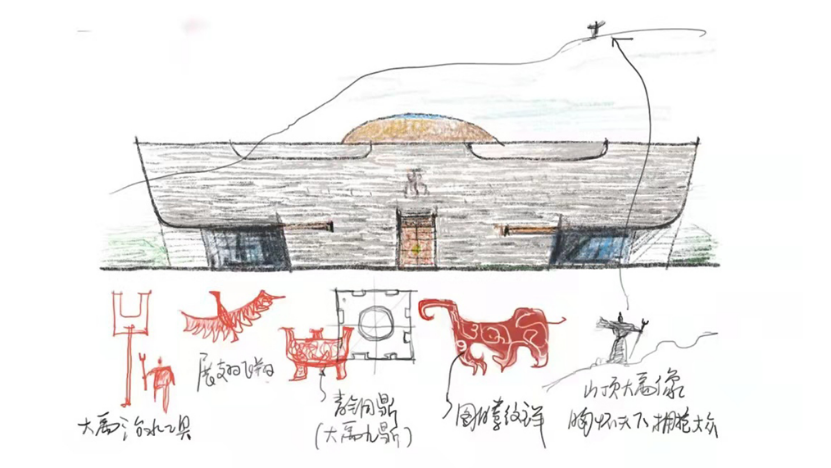 大禹治水工具
展翅飞翔
青铜鼎
(大禹九鼎)
图腾纹样
山顶大禹像
胸怀天下 拥抱大众